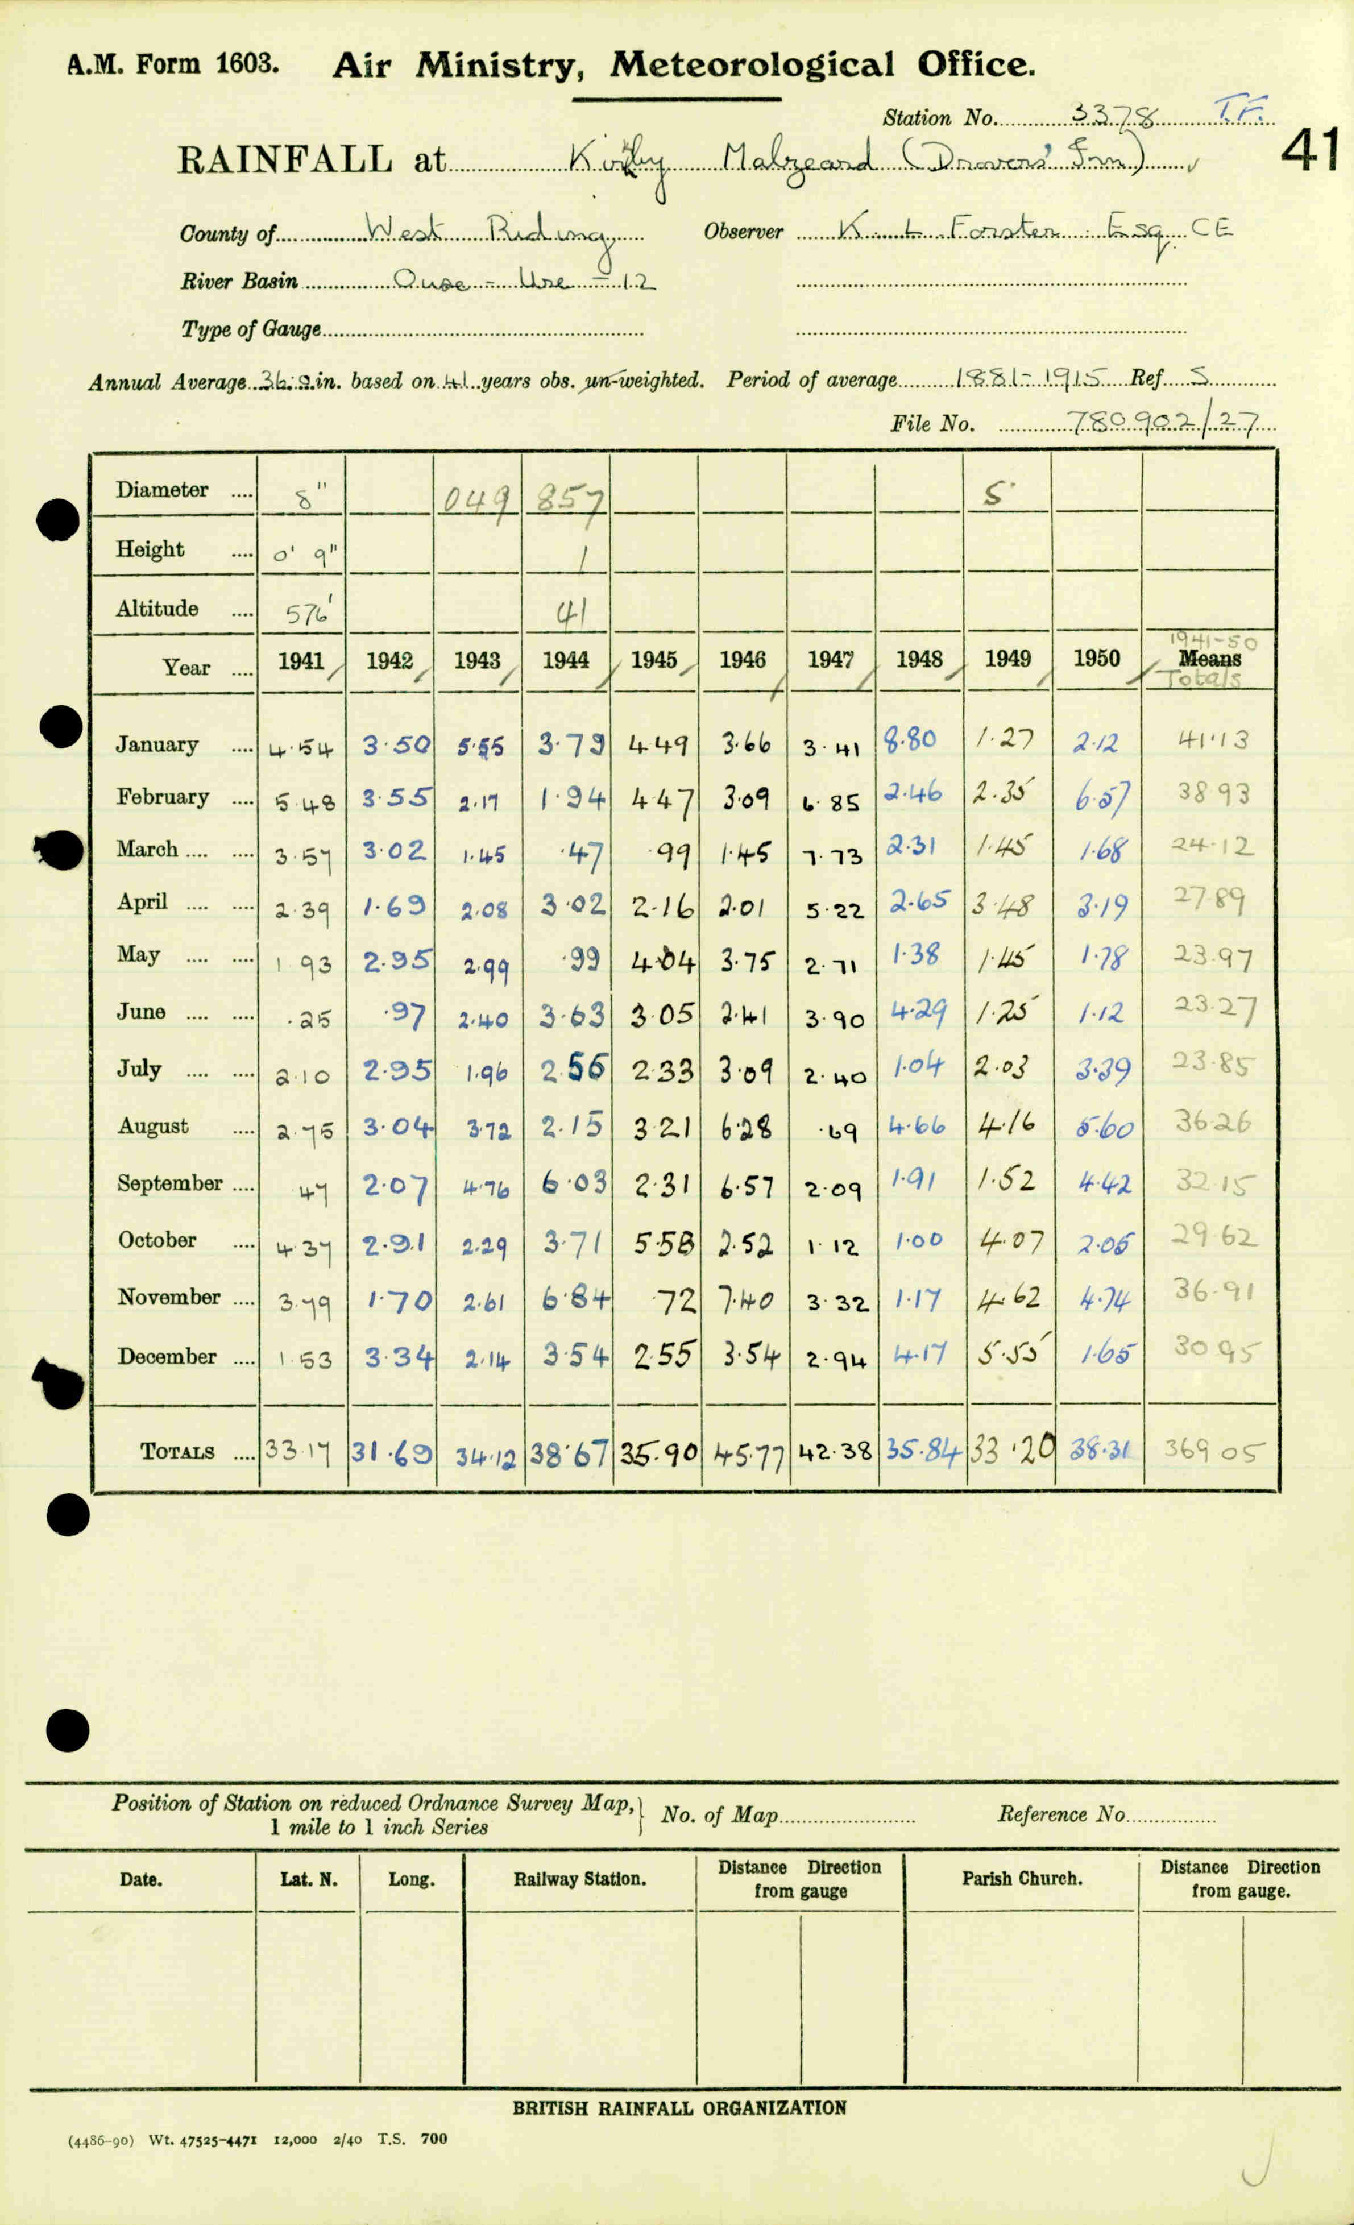 A.M. Form 1603. Air Ministry, Meteorological Office.
Station No. 3378 T.F.
41
RAINFALL at Kirkby Malzeard (Drovers' Inn) ✓
County of West Riding Observer K. L. Forster Esq. CE
River Basin Ouse - Ure - 12
Type of Gauge
Annual Average 36.9 in. based on 41 years obs. un-weighted. Period of average 1881-1915 Ref. S
File No. 780902/27
Diameter .... 8" 049 857 5"
Height .... 0' 9" 1
Altitude .... 576' 41
1941-50
Year .... 1941 1942 1943 1944 1945 1946 1947 1948 1949 1950 Means
Totals
January .... 4.54 3.50 5.55 3.79 4.49 3.66 3.41 8.80 1.27 2.12 41.13
February .... 5.48 3.55 2.17 1.94 4.47 3.09 6.85 2.46 2.35 6.57 38.93
March .... .... 3.57 3.02 1.45 .47 .99 1.45 7.73 2.31 1.45 1.68 24.12
April .... .... 2.39 1.69 2.08 3.02 2.16 2.01 5.22 2.65 3.48 3.19 27.89
May .... .... 1.93 2.95 2.99 .99 4.04 3.75 2.71 1.38 1.45 1.78 23.97
June .... .... .25 .97 2.40 3.63 3.05 2.41 3.90 4.29 1.25 1.12 23.27
July .... .... 2.10 2.95 1.96 2.56 2.33 3.09 2.40 1.04 2.03 3.39 23.85
August .... 2.75 3.04 3.72 2.15 3.21 6.28 .69 4.66 4.16 5.60 36.26
September .... 47 2.07 4.76 6.03 2.31 6.57 2.09 1.91 1.52 4.42 32.15
October .... 4.37 2.91 2.29 3.71 5.58 2.52 1.12 1.00 4.07 2.05 29.62
November .... 3.79 1.70 2.61 6.84 72 7.40 3.32 1.17 4.62 4.74 36.91
December .... 1.53 3.34 2.14 3.54 2.55 3.54 2.94 4.17 5.55 1.65 30.95
TOTALS .... 33.17 31.69 34.12 38.67 35.90 45.77 42.38 35.84 33.20 38.31 369.05
Position of Station on reduced Ordnance Survey Map,} No. of Map Reference No.
1 mile to 1 inch Series
Date. Lat. N. Long. Railway Station. Distance Direction from gauge Parish Church. Distance Direction from gauge.
BRITISH RAINFALL ORGANIZATION
(4486-90) Wt. 47525-4471 12,000 2/40 T.S. 700